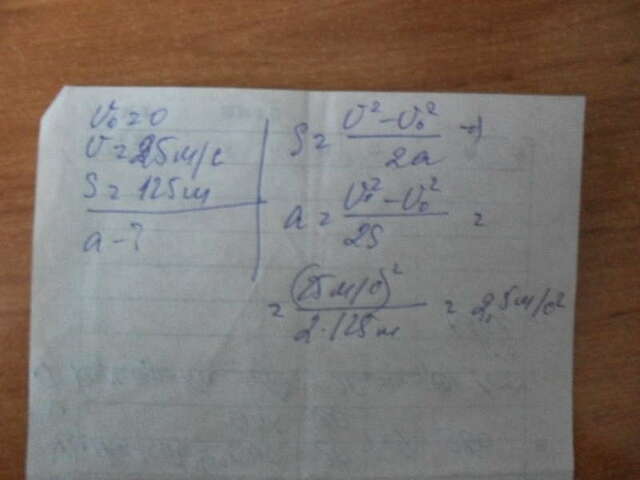 v₀ = 0
v = 25 м/с
S = 125 м
a - ?
S = (v² - v₀²) / 2a ⇒
a = (v² - v₀²) / 2S =
= (25 м/с)² / 2·125 м = 2,5 м/с²